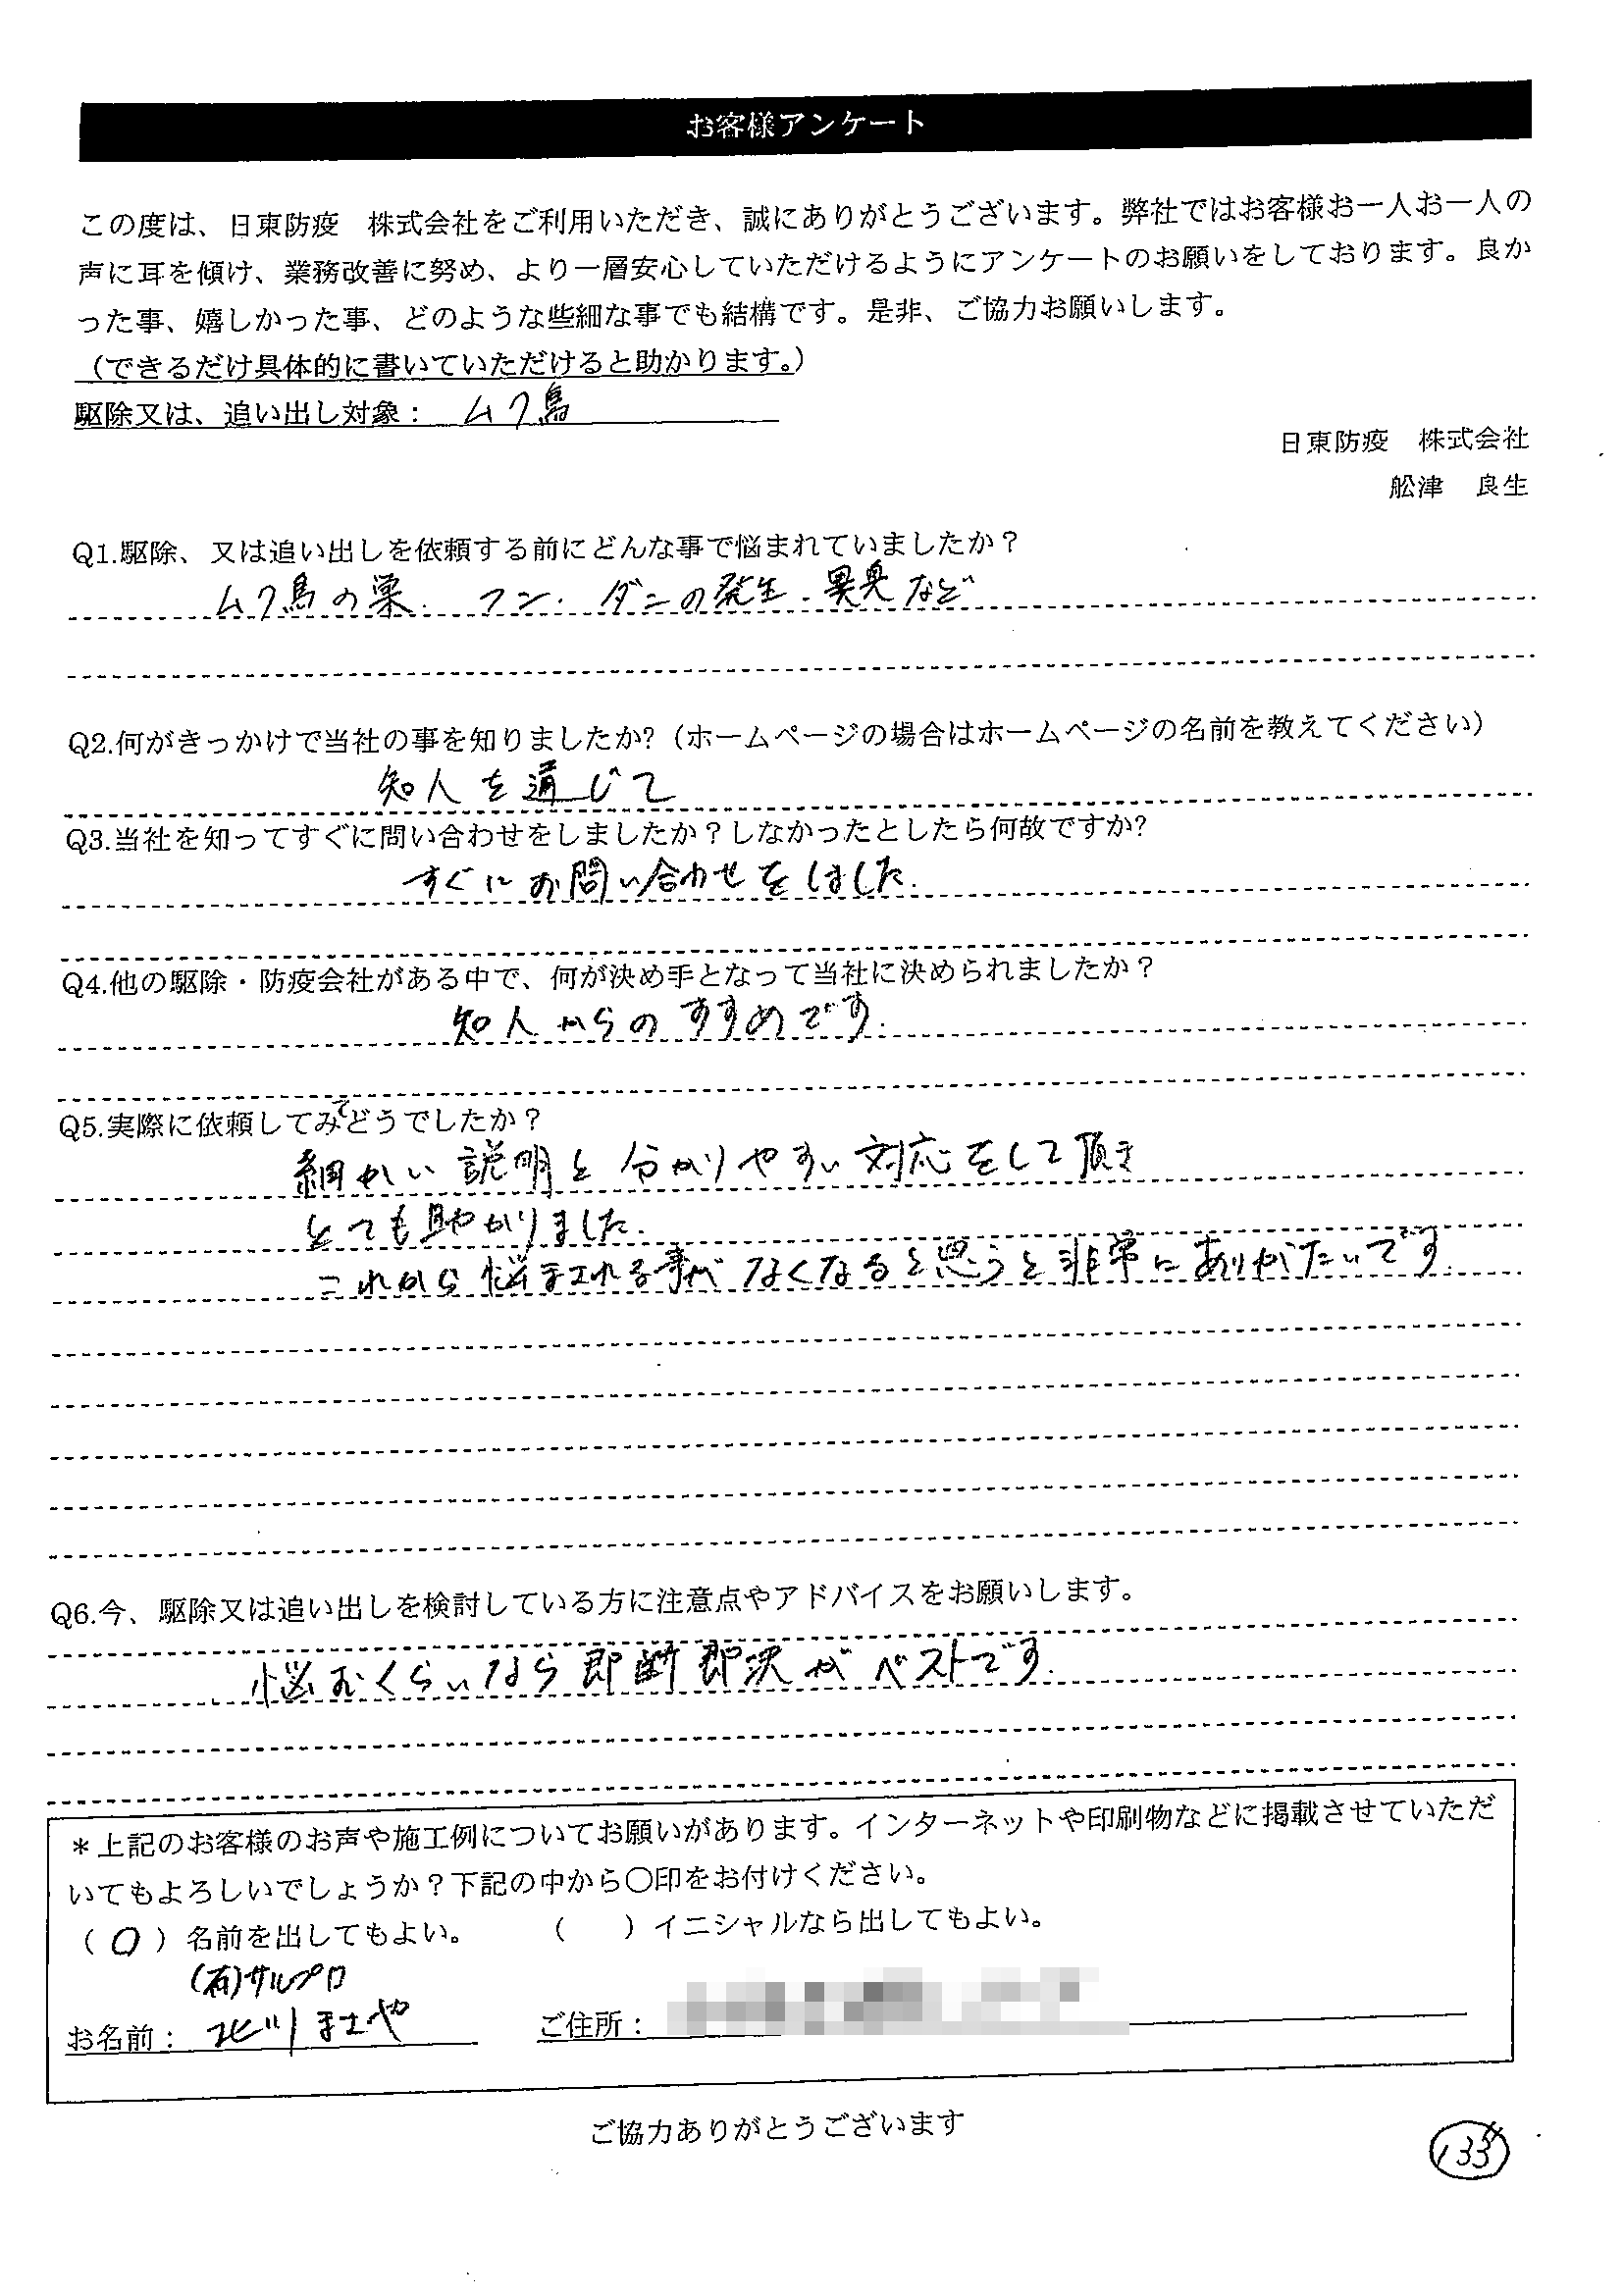 お客様アンケート
この度は、日東防疫　株式会社をご利用いただき、誠にありがとうございます。弊社ではお客様お一人お一人の
声に耳を傾け、業務改善に努め、より一層安心していただけるようにアンケートのお願いをしております。良か
った事、嬉しかった事、どのような些細な事でも結構です。是非、ご協力お願いします。
（できるだけ具体的に書いていただけると助かります。）
駆除又は、追い出し対象： ムク鳥
日東防疫　株式会社
舩津　良生
Q1.駆除、又は追い出しを依頼する前にどんな事で悩まれていましたか？
ムク鳥の巣. フン. ダニの発生. 異臭など
Q2.何がきっかけで当社の事を知りましたか?（ホームページの場合はホームページの名前を教えてください）
知人を通じて
Q3.当社を知ってすぐに問い合わせをしましたか？しなかったとしたら何故ですか?
すぐにお問い合わせをしました.
Q4.他の駆除・防疫会社がある中で、何が決め手となって当社に決められましたか？
知人からのすすめです.
Q5.実際に依頼してみてどうでしたか？
細かい説明と分かりやすい対応をして頂き
とても助かりました.
これから悩まされる事がなくなると思うと非常にありがたいです.
Q6.今、駆除又は追い出しを検討している方に注意点やアドバイスをお願いします。
悩むくらいなら即断即決がベストです.
＊上記のお客様のお声や施工例についてお願いがあります。インターネットや印刷物などに掲載させていただ
いてもよろしいでしょうか？下記の中から〇印をお付けください。
（〇）名前を出してもよい。　（　）イニシャルなら出してもよい。
(有)サルプロ
お名前： 北川まさや　ご住所：
ご協力ありがとうございます